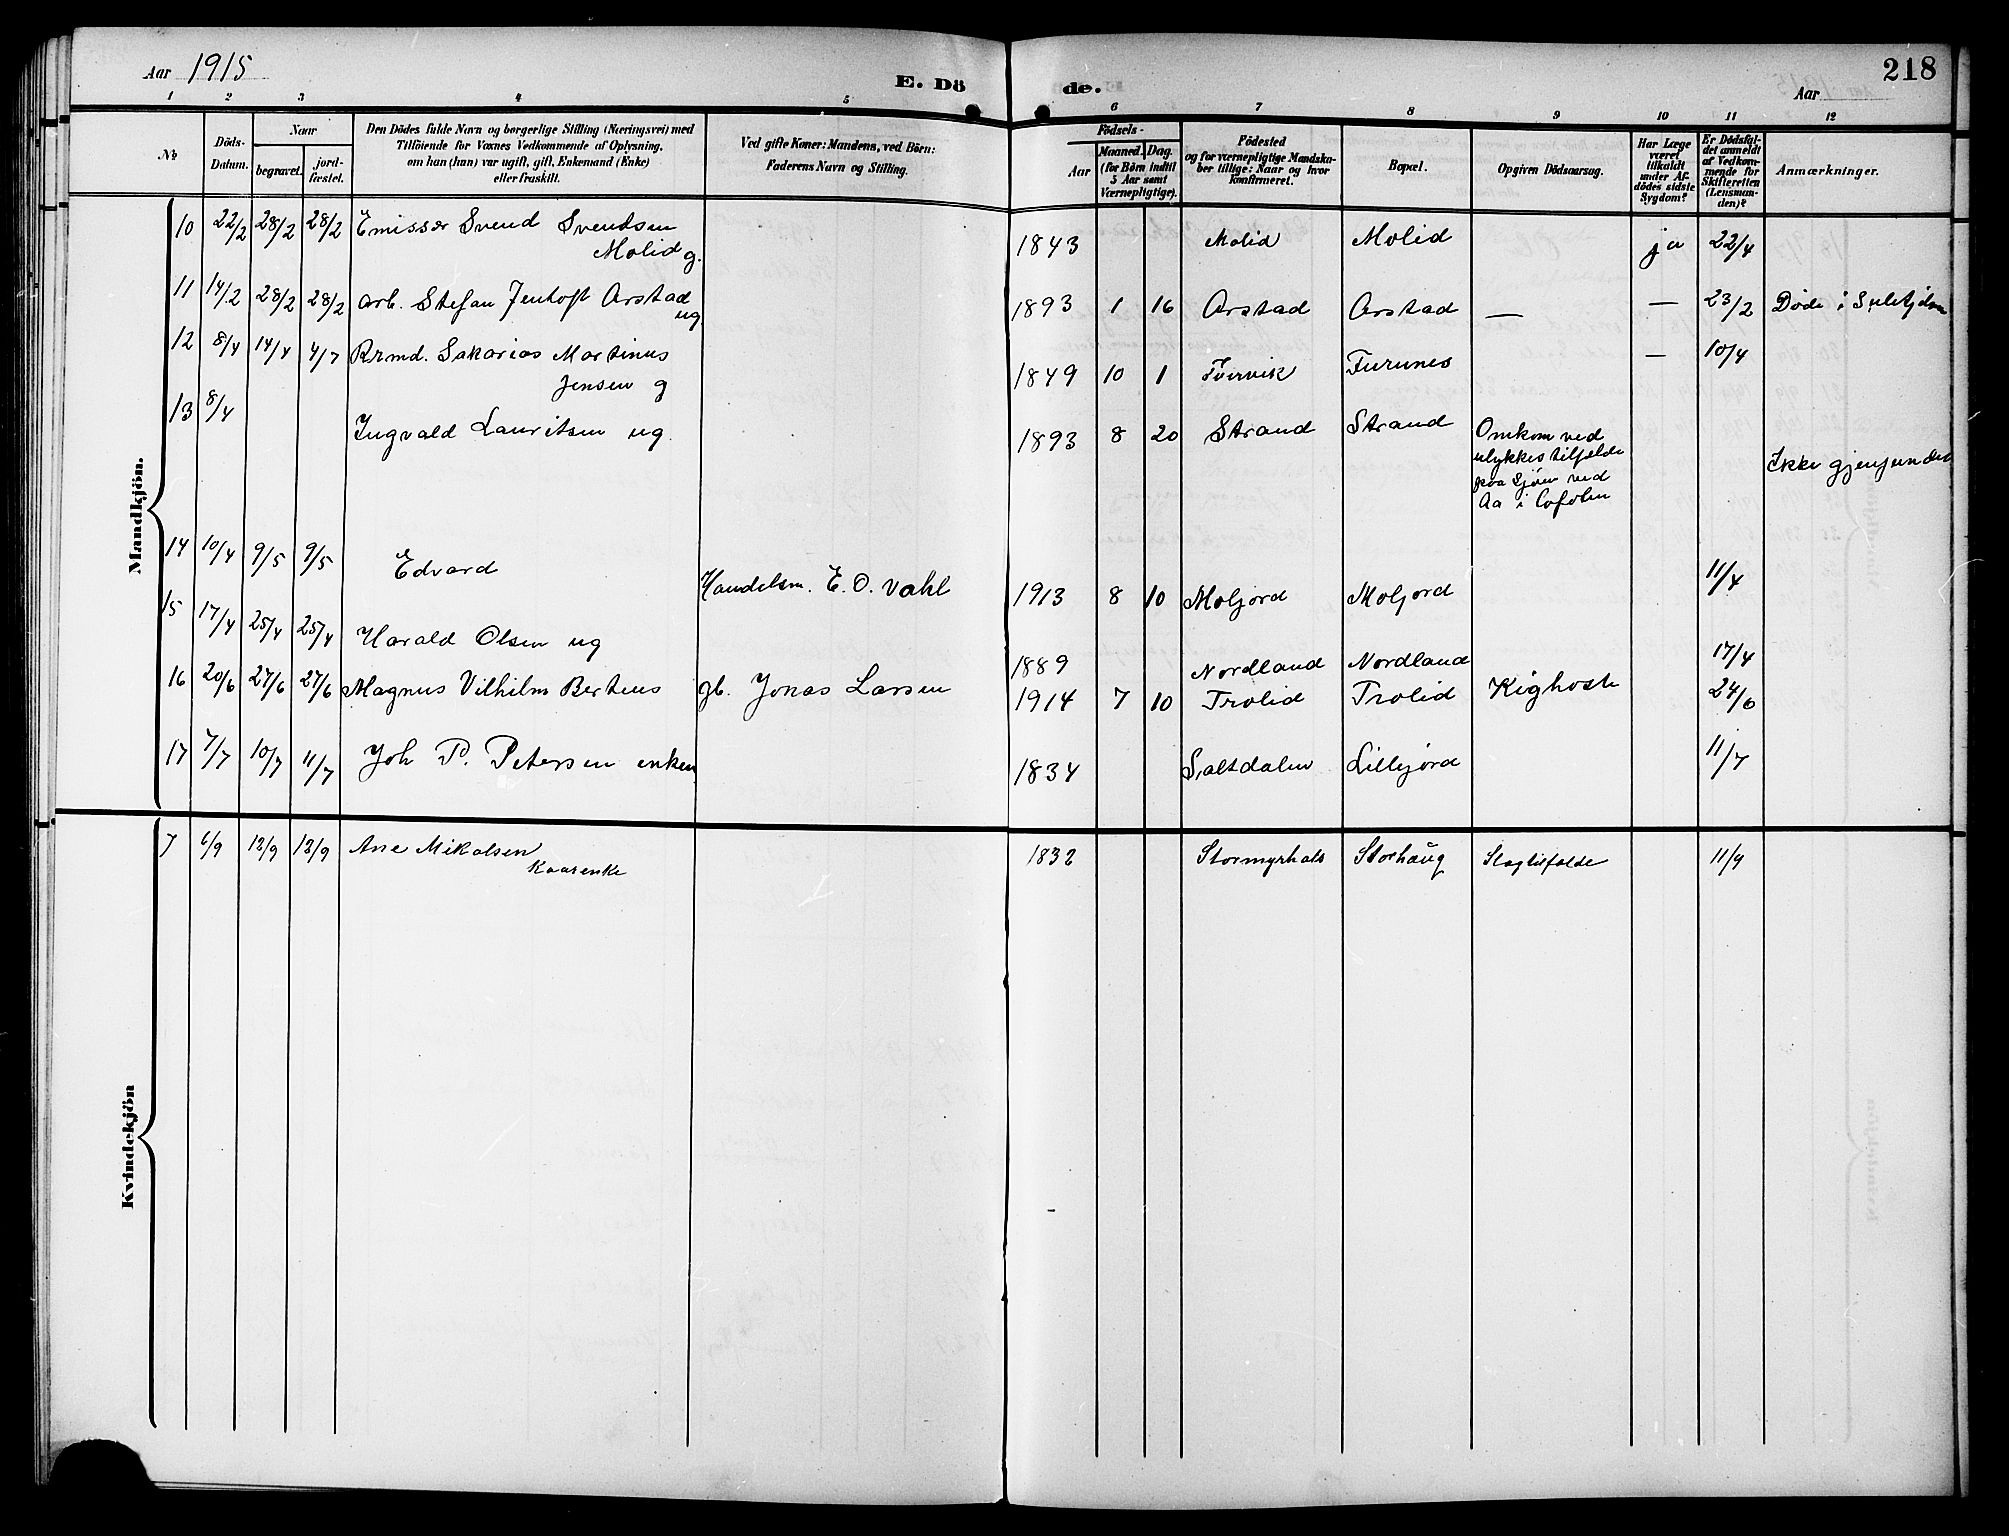 Aar 1915
E. Dö
de.
Aar
218
1 2 3 4 5 6 7 8 9 10 11 12
No
Döds-Datum.
Naar
begravet.
jord-fæstet.
Den Dödes fulde Navn og borgerlige Stilling (Næringsvei) med
Tilföiende for Voxnes Vedkommende af Oplysning,
om han (hun) var ugift, gift, Enkemand (Enke)
eller fraskilt.
Ved gifte Koner: Mandens, ved Börn:
Faderens Navn og Stilling.
Födsels-
Aar
Maaned. Dag.
(for Börn indtil
5 Aar samt
Værnepligtige).
Födested
og for værnepligtige Mandska-
ber tillige: Naar og hvor
konfirmeret.
Bopæl.
Opgiven Dödsaarsag.
Har Læge
været
tilkaldt
under Af-
dödes sidste
Sygdom?
Er Dödsfal-
det anmeldt
af Vedkom-
mende for
Skifteretten
(Lensman-
den)?
Anmærkninger.
Mandkjön.
10 22/2 28/2 28/2 Emissær Svend Svendsen
Molid g. 1843 Molid Molid ja 22/4
11 14/2 28/2 28/2 arb. Stefan Jentoft Arstad
ug. 1893 1 16 Arstad Arstad — — 23/2 Döde i Sulitjelma
12 8/4 14/4 4/7 Rrmd. Sakarias Martinus
Jensen g 1849 10 1 Tvervik Furunes — 10/4
13 8/4 Ingvald Lauritsen ug. 1893 8 20 Strand Strand Omkom ved
ulykkestilfælde
paa Sjöen ved
Aa i Lofoten
Ikke gjenfundet
14 10/4 9/5 9/5 Edvard Handelsm. E. O. Vahl 1913 8 10 Moljord Moljord 11/4
15 17/4 25/4 25/4 Harald Olsen ug 1889 Nordland Nordland 17/4
16 20/6 27/6 27/6 Magnus Vilhilm Berteus gb. Jonas Larsen 1914 7 10 Trolid Trolid Kighoste 24/6
17 7/7 10/7 11/7 Joh P. Petersen enkem 1834 Saltdalen Lillejord 11/7
Kvindekjön
7 6/9 12/9 12/9 Ane Mikalsen
Kaarenke 1832 Stormyrhals Storhaug Slagtilfælde 11/9